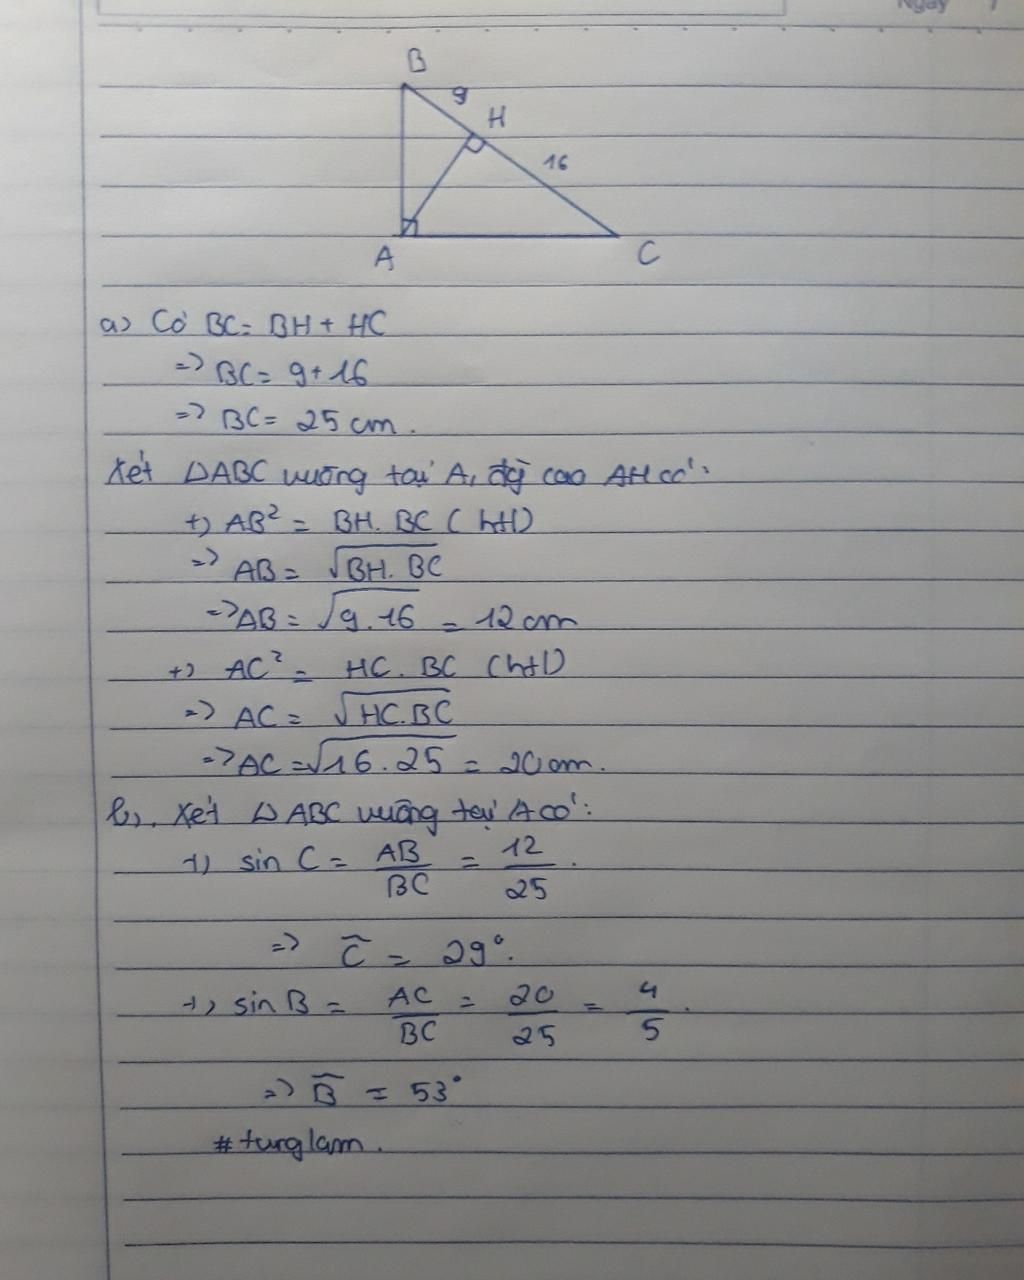 Ngày
B
9
H
16
A
C
a) Có BC = BH + HC
=> BC = 9 + 16
=> BC = 25 cm.
Xét ΔABC vuông tại A, đg cao AH có:
+) AB² = BH. BC (htl)
=> AB = √BH. BC
=> AB = √9.16 = 12 cm
+) AC² = HC. BC (htl)
=> AC = √HC.BC
=> AC = √16.25 = 20 cm.
b), Xét ΔABC vuông tại A có:
+) sin C = AB/BC = 12/25.
=> Ĉ = 29°.
+) sin B = AC/BC = 20/25 = 4/5.
=> B̂ = 53°
# tunglam.